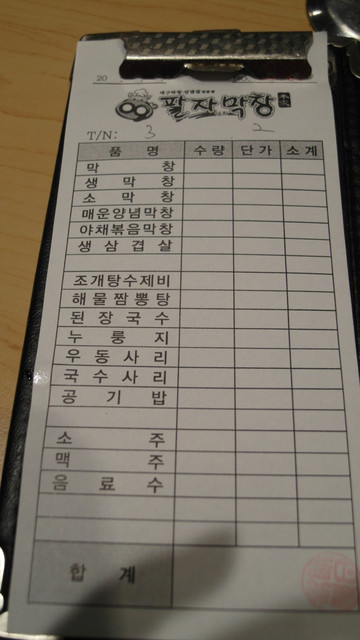 20
팔자막창
T/N: 3 2
품 명 수량 단가 소계
막 창
생 막 창
소 막 창
매운양념막창
야채볶음막창
생 삼 겹 살
조개탕수제비
해물짬뽕탕
된장국수
누 룽 지
우동사리
국수사리
공 기 밥
소 주
맥 주
음 료 수
합 계